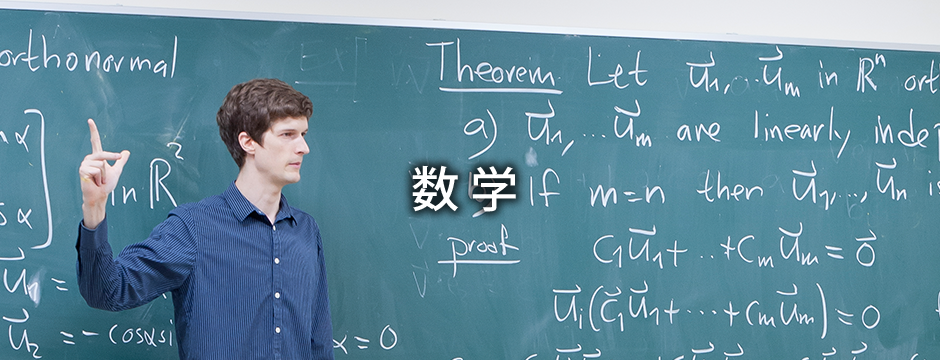 orthonormal
in ℝ²
= -cosα si
α = 0
数学
Theorem Let u⃗₁, ... u⃗ₘ in ℝⁿ ort
a) u⃗₁, ... u⃗ₘ are linearly inde
If m=n then u⃗₁, ..., u⃗ₙ is
proof
c₁u⃗₁ + ... + cₘu⃗ₘ = 0⃗
u⃗ᵢ(c⃗₁u⃗₁ + ... + cₘu⃗ₘ) = 0